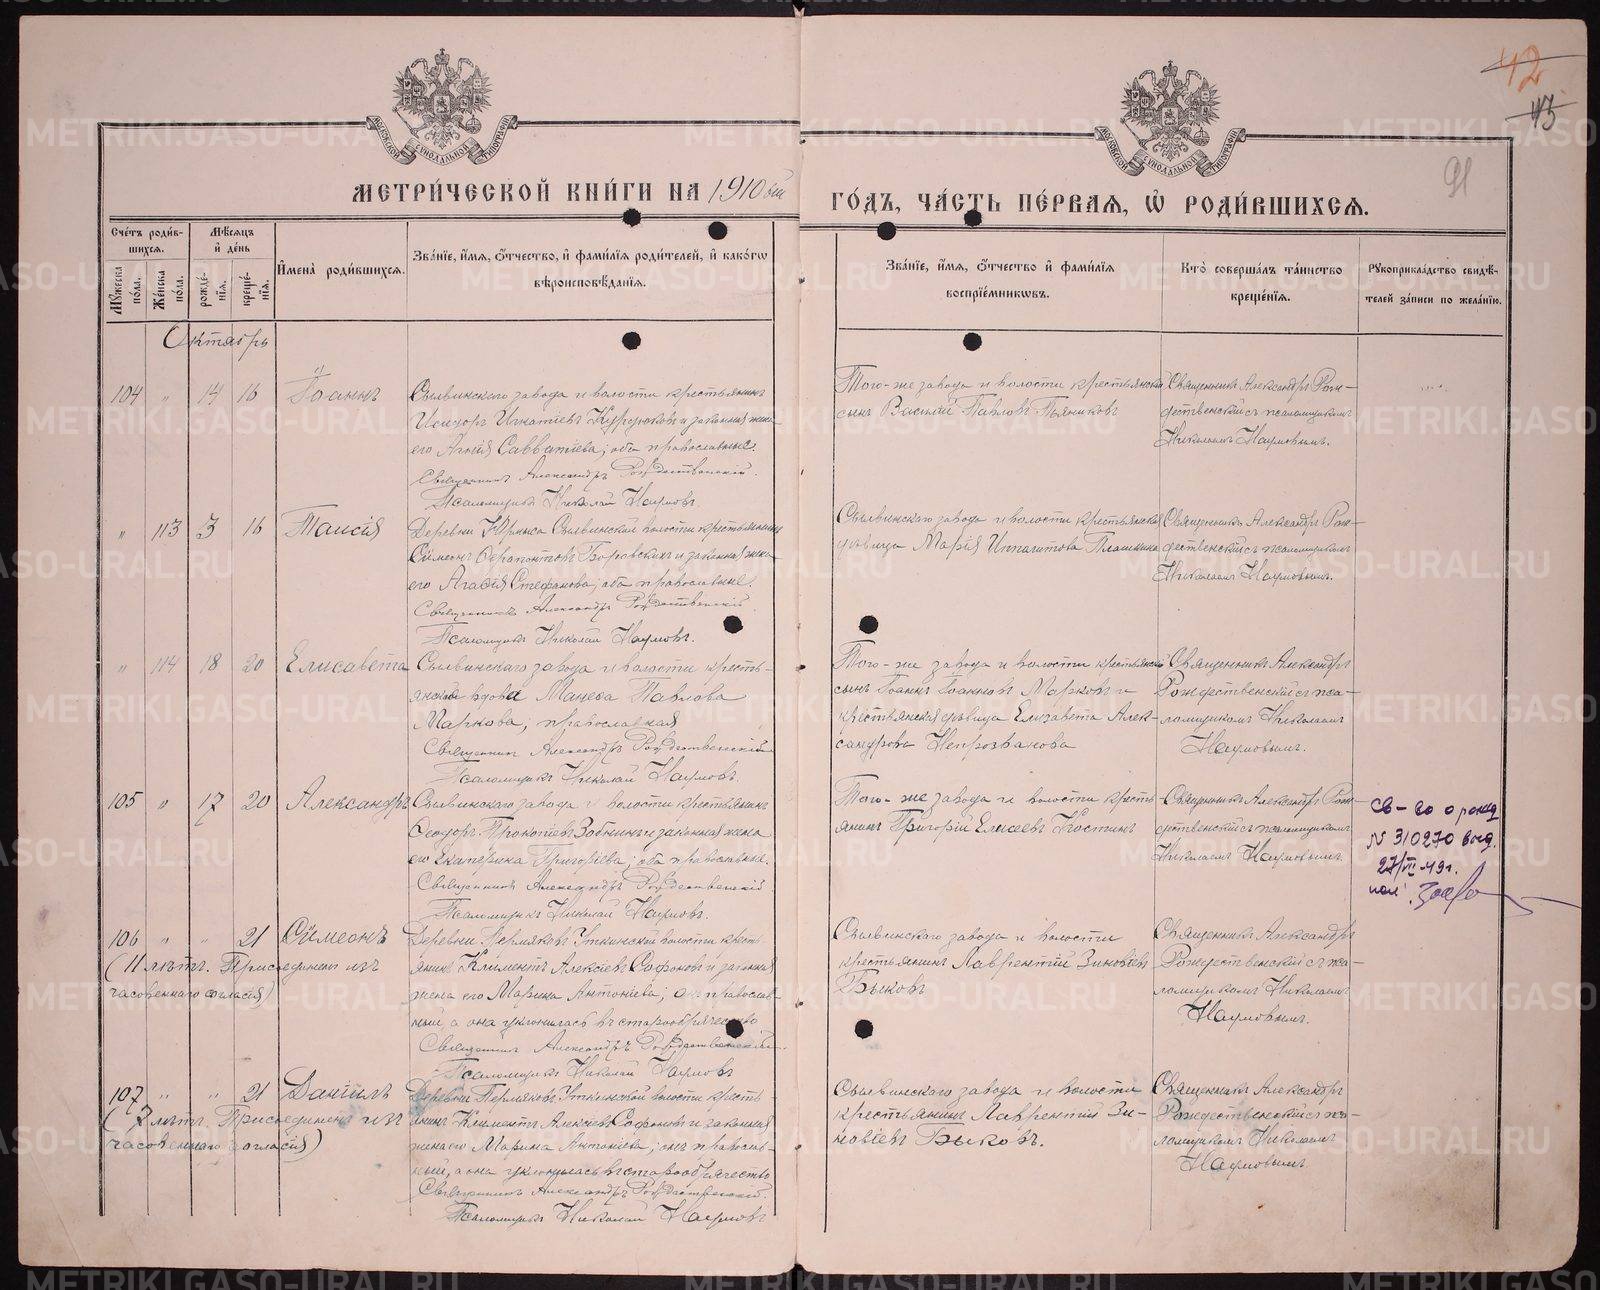 42
43
91
МЕТРИ́ЧЕСКОЙ КНИ́ГИ НА 1910 ый
ГО́ДЪ, ЧА́СТЬ ПЕ́РВАЯ, Ѿ РОДИ́ВШИХСЯ.
Сче́тъ роди́вшихся.
Мꙋ́жеска по́ла.
Же́нска по́ла.
Мѣ́сяцъ и де́нь
рожде́нїя.
креще́нїя.
Имена̀ роди́вшихся.
Зва́нїе, и́мя, ѻ́тчество, и фами́лїя роди́телей, и како́гѡ
вѣроисповѣ́данїя.
Зва́нїе, и́мя, ѻ́тчество и фами́лїя
воспрїе́мникѡвъ.
Кто̀ соверша́лъ та́инство
креще́нїя.
Рꙋкоприкла́дство свидѣ́-
телей за́писи по жела́нїю.
Октябрь
104 " 14 16 Іоаннъ
Сылвинскаго завода и волости крестьянинъ
Исидоръ Игнатіевъ и законная жена
его Агнія Савватіева, оба православные.
Священникъ Александръ Рождественскій.
Псаломщикъ Николай Наумовъ
Того-же завода и волости крестьянскій
сынъ Василій Павловъ Пьянковъ
Священникъ Александръ Рож-
дественскій съ псаломщикомъ
Николаемъ Наумовымъ.
" 113 3 16 Таисія
Деревни Сылвинской волости крестьянинъ
Сѵмеонъ Ферапонтовъ Боровскихъ и законная жена
его Агафія Стефанова, оба православные.
Священникъ Александръ Рождественскій
Псаломщикъ Николай Наумовъ.
Сылвинскаго завода и волости крестьянская
дѣвица Марія Ипполитова
Священникъ Александръ Рож-
дественскій съ псаломщикомъ
Николаемъ Наумовымъ.
" 114 18 20 Елисавета
Сылвинскаго завода и волости кресть-
янская вдова Павлова
Маркова, православная
Священникъ Александръ Рождественскій
Псаломщикъ Николай Наумовъ.
Того-же завода и волости крестьянскій
сынъ Іоаннъ Іоанновъ Марковъ и
крестьянская дѣвица Елизавета Алек-
сандрова Непрозванова
Священникъ Александръ
Рождественскій съ пса-
ломщикомъ Николаемъ
Наумовымъ.
105 " 17 20 Александръ
Сылвинскаго завода и волости крестьянинъ
Ѳеодоръ Прокопіевъ Зобнинъ и законная жена
его Екатерина Григоріева, оба православные.
Священникъ Александръ Рождественскій.
Псаломщикъ Николай Наумовъ.
Того-же завода и волости кресть-
янинъ Григорій Елисеевъ Костинъ
Священникъ Александръ Рож-
дественскій съ псаломщикомъ
Николаемъ Наумовымъ.
св-во о рожд
N 310270 выд.
27/VII 49г.
106 " " 21 Сѵмеонъ
(11 лѣтъ. Присоединенъ изъ
часовеннаго согласія)
Деревни Пермяковъ Уткинской волости кресть-
янинъ Климентъ Алексіевъ Софоновъ и законная
жена его Марина Антоніева; онъ православ-
ный, а она уклонилась въ старообрядчество
Священникъ Александръ Рождественскій.
Псаломщикъ Николай Наумовъ
Сылвинскаго завода и волости
крестьянинъ Лаврентій Зиновіевъ
Быковъ
Священникъ Александръ
Рождественскій съ пса-
ломщикомъ Николаемъ
Наумовымъ.
107 " " 21 Даніилъ
(7 лѣтъ. Присоединенъ изъ
часовеннаго согласія)
Деревни Пермяковъ Уткинской волости кресть-
янинъ Климентъ Алексіевъ Софоновъ и законная
жена его Марина Антоніева; онъ православ-
ный, а она уклонилась въ старообрядчество
Священникъ Александръ Рождественскій.
Псаломщикъ Николай Наумовъ
Сылвинскаго завода и волости
крестьянинъ Лаврентій Зи-
новіевъ Быковъ.
Священникъ Александръ
Рождественскій съ пса-
ломщикомъ Николаемъ
Наумовымъ.
METRIKI.GASO-URAL.RU